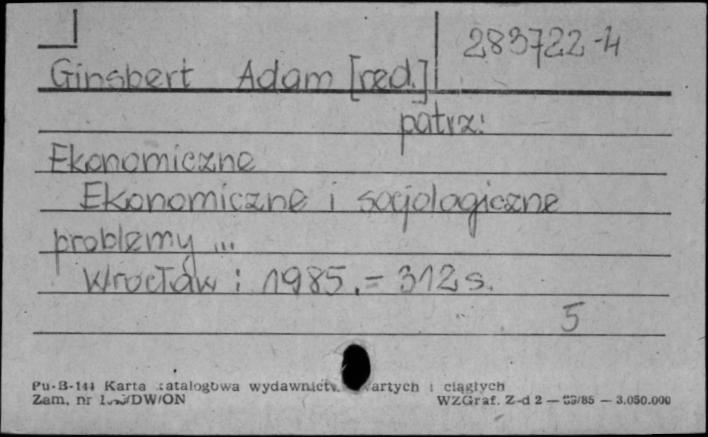 283722-4
Ginsbert Adam [red.]
patrz:
Ekonomiczne
Ekonomiczne i socjologiczne
problemy ...
Wrocław : 1985. = 312 s.
5
Pu-B-144 Karta katalogowa wydawnictw zwartych i ciągłych
Zam. nr /DW/ON WZGraf. Z-d 2 — /85 — 3.050.000